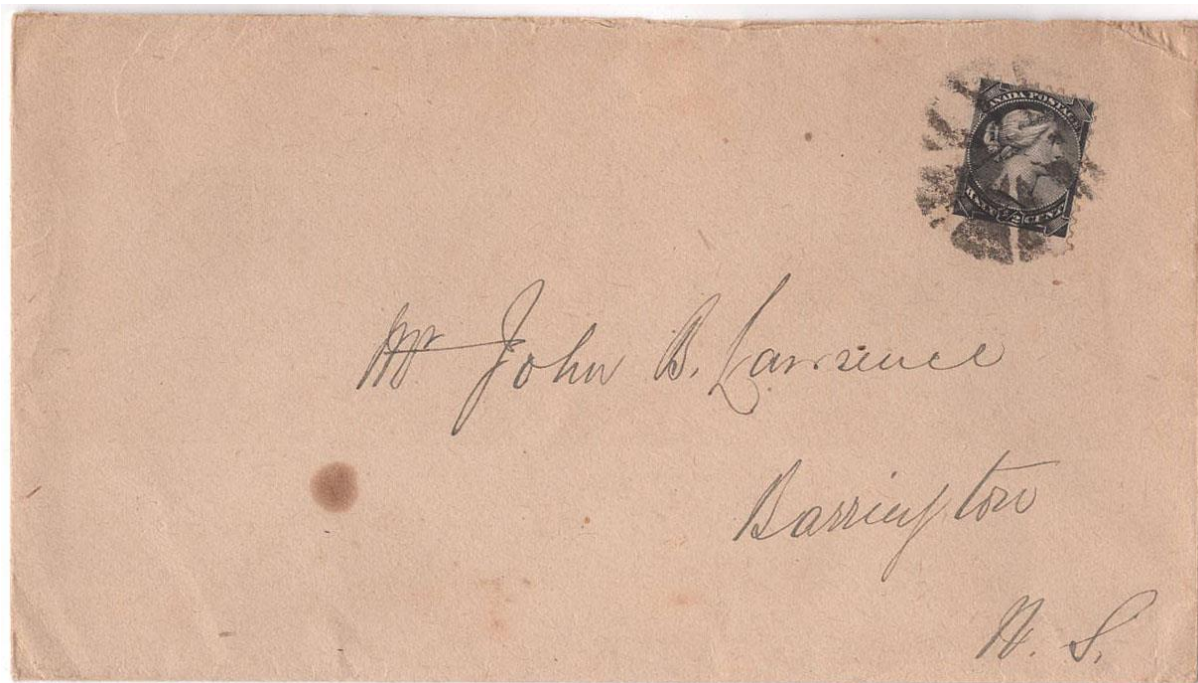 ANADA POSTAGE
½ CENT
Mr John B. Lawrence
Barrington
N. S.